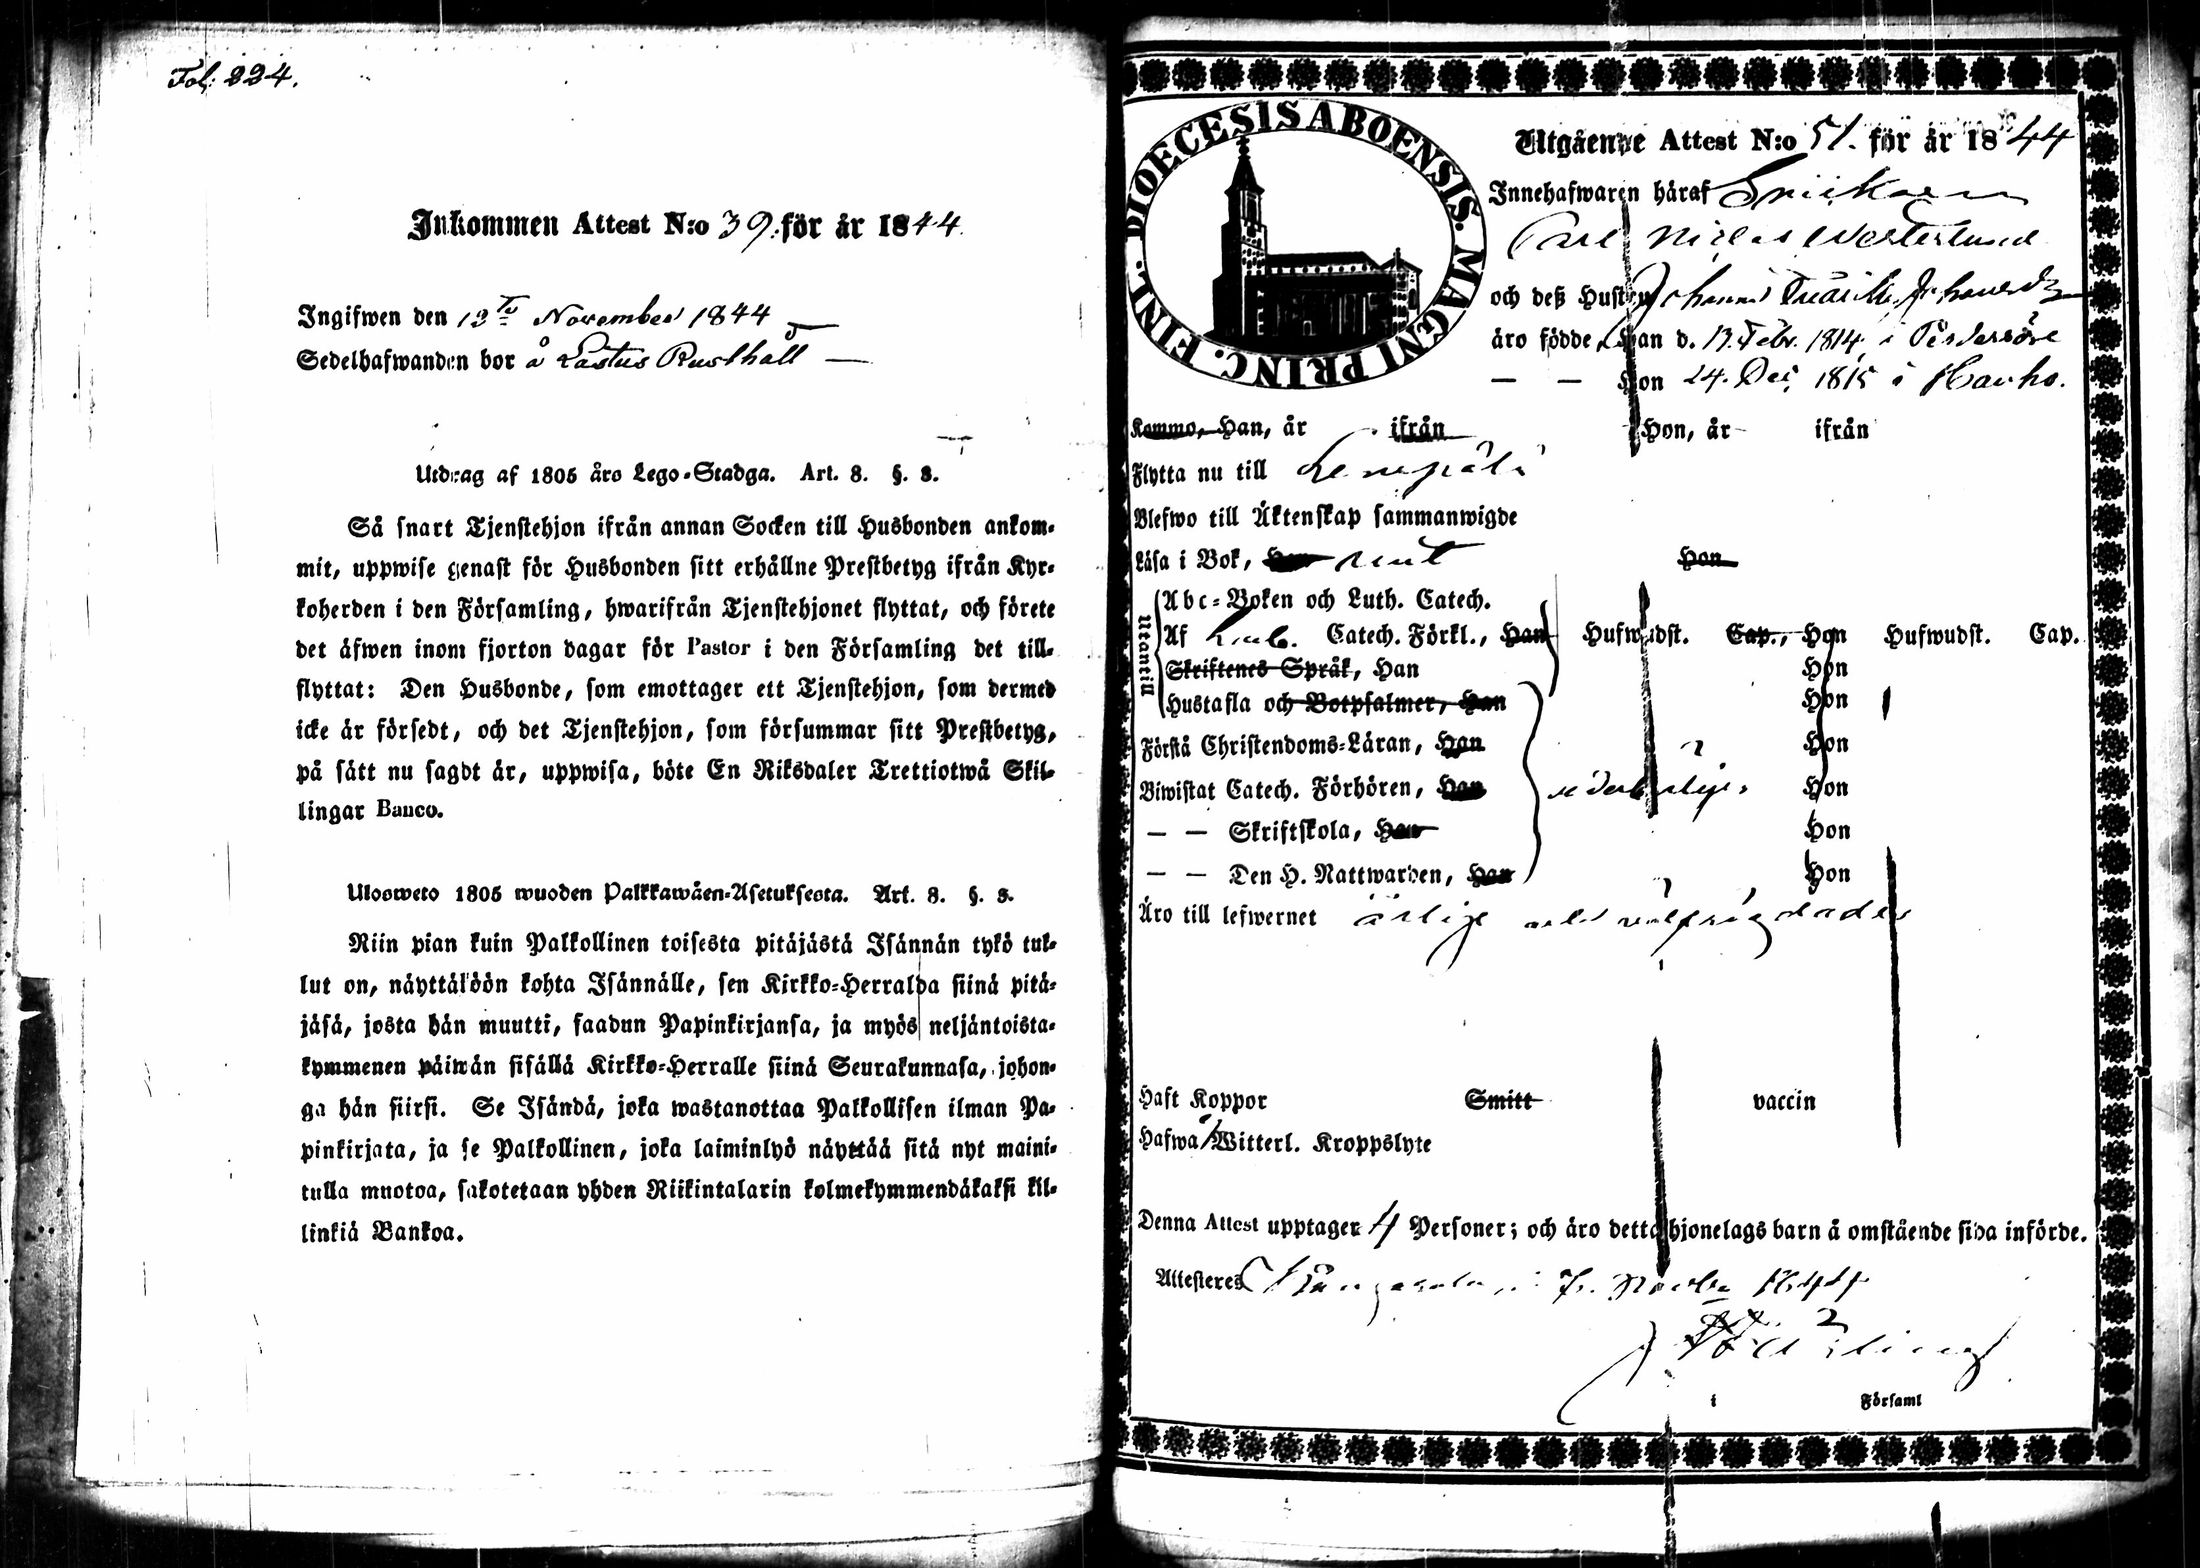 Fol: 224.
Inkommen Attest N:o 39. för år 1844.
Ingifwen den 13 November 1844
Sedelhafwanden bor å Lastus Rusthåll
Utdrag af 1805 åro Lego-Stadga. Art. 8. §. 8.
Så snart Tjenstehjon ifrån annan Socken till Husbonden ankom-
mit, uppwise genast för Husbonden sitt erhållne Prestbetyg ifrån Kyr-
koherden i den Församling, hwarifrån Tjenstehjonet flyttat, och förete
det äfwen inom fjorton dagar för Pastor i den Församling det till-
flyttat: Den Husbonde, som emottager ett Tjenstehjon, som dermed
icke är försedt, och det Tjenstehjon, som försummar sitt Prestbetyg,
på sätt nu sagdt är, uppwisa, böte En Riksdaler Trettiotwå Skil-
lingar Banco.
Ulosweto 1805 wuoden Palkkawäen-Asetuksesta. Art. 8. §. 8.
Niin pian kuin Palkollinen toisesta pitäjästä Isännän tykö tul-
lut on, näyttäköön kohta Isännälle, sen Kirkko-Herralda siinä pitä-
jäsä, josta hän muutti, saadun Papinkirjansa, ja myös neljäntoista-
kymmenen päiwän sisällä Kirkko-Herralle siinä Seurakunnasa, johon-
ga hän siirsi. Se Isändä, joka wastanottaa Palkollisen ilman Pa-
pinkirjata, ja se Palkollinen, joka laiminlyö näyttää sitä nyt maini-
tulla muotoa, sakotetaan yhden Riikintalarin kolmekymmendäkaksi kil-
linkiä Bankoa.
DIOECESIS ABOENSIS. MAGNI PRINC. FINL.
Utgående Attest N:o 51. för år 1844
Innehafwaren häraf
Carl Niclas Westerlund
och deß Hustru Johanna
äro födde, Han d. 13. Febr. 1814 i Pedersöre
— — Hon 24. Dec. 1815 i Hauho.
Kommo, Han, år ifrån Hon, år ifrån
Flytta nu till Lempälä
Blefwo till Äktenskap sammanwigde
Läsa i Bok, Han rent Hon
Utantill
Abc-Boken och Luth. Catech.
Af Catech. Förkl., Han Hufwudst. Cap., Hon Hufwudst. Cap.
Skriftenes Språk, Han Hon
Hustafla och Botpsalmer, Han Hon
Förstå Christendoms-Läran, Han Hon
Biwistat Catech. Förhören, Han Hon
— — Skriftskola, Han Hon
— — Den H. Nattwarden, Han Hon
Äro till lefwernet ärlige och välfrägdade
Haft Koppor Smitt vaccin
Hafwa Witterl. Kroppslyte
Denna Attest upptager 4 Personer; och äro detta hjonelags barn å omstående sida införde.
Attesteres Kangasala 1844
i Församl